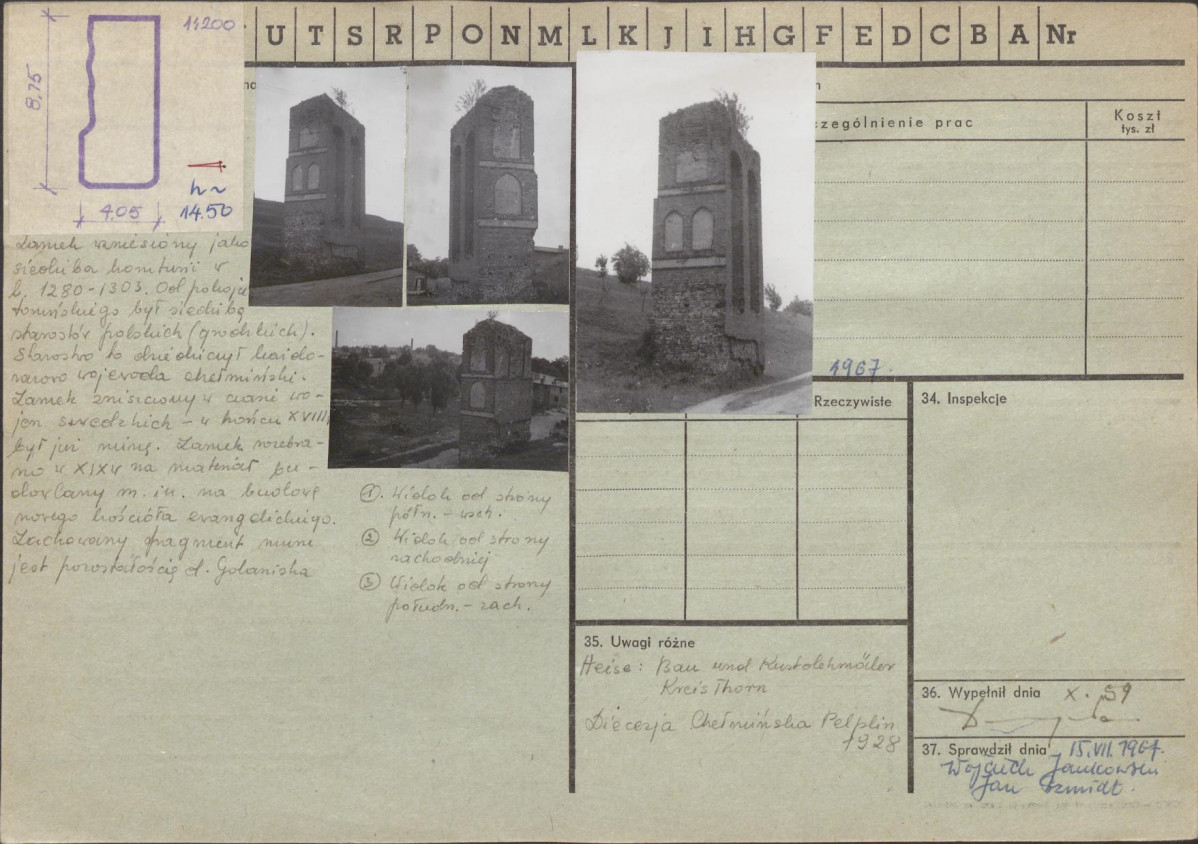 U T S R P O N M L K J I H G F E D C B A Nr
1:200
8,75
4.05
h~
14.50
Zamek wzniesiony jako
siedziba komturii w
l. 1280-1303. Od pokoju
toruńskiego był siedzibą
starostów polskich (grodzkich).
Starostwo to dziedziczył każdo-
razowo wojewoda chełmiński.
Zamek zniszczony w czasie wo-
jen szwedzkich - w końcu XVIII
był już ruiną. Zamek rozebra-
no w XIX w na materiał bu-
dowlany m. in. na budowę
nowego kościoła evangelickiego.
Zachowany fragment ruin
jest pozostałością d. Gdaniska
①. Widok od strony
półn. - wsch.
② Widok od strony
zachodniej
③ Widok od strony
połudn. - zach.
zczególnienie prac
Koszt
tys. zł
1967.
Rzeczywiste
34. Inspekcje
35. Uwagi różne
Heise: Bau und Kunstdenkmäler
Kreis Thorn
Diecezja Chełmińska Pelplin
1928
36. Wypełnił dnia X. 59
37. Sprawdził dnia 15.VII.1967.
Wojciech Jankowski
Jan Szmidt.